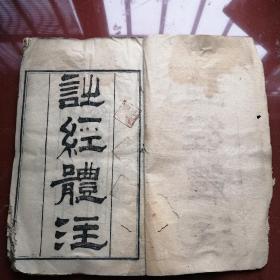 詩經體注